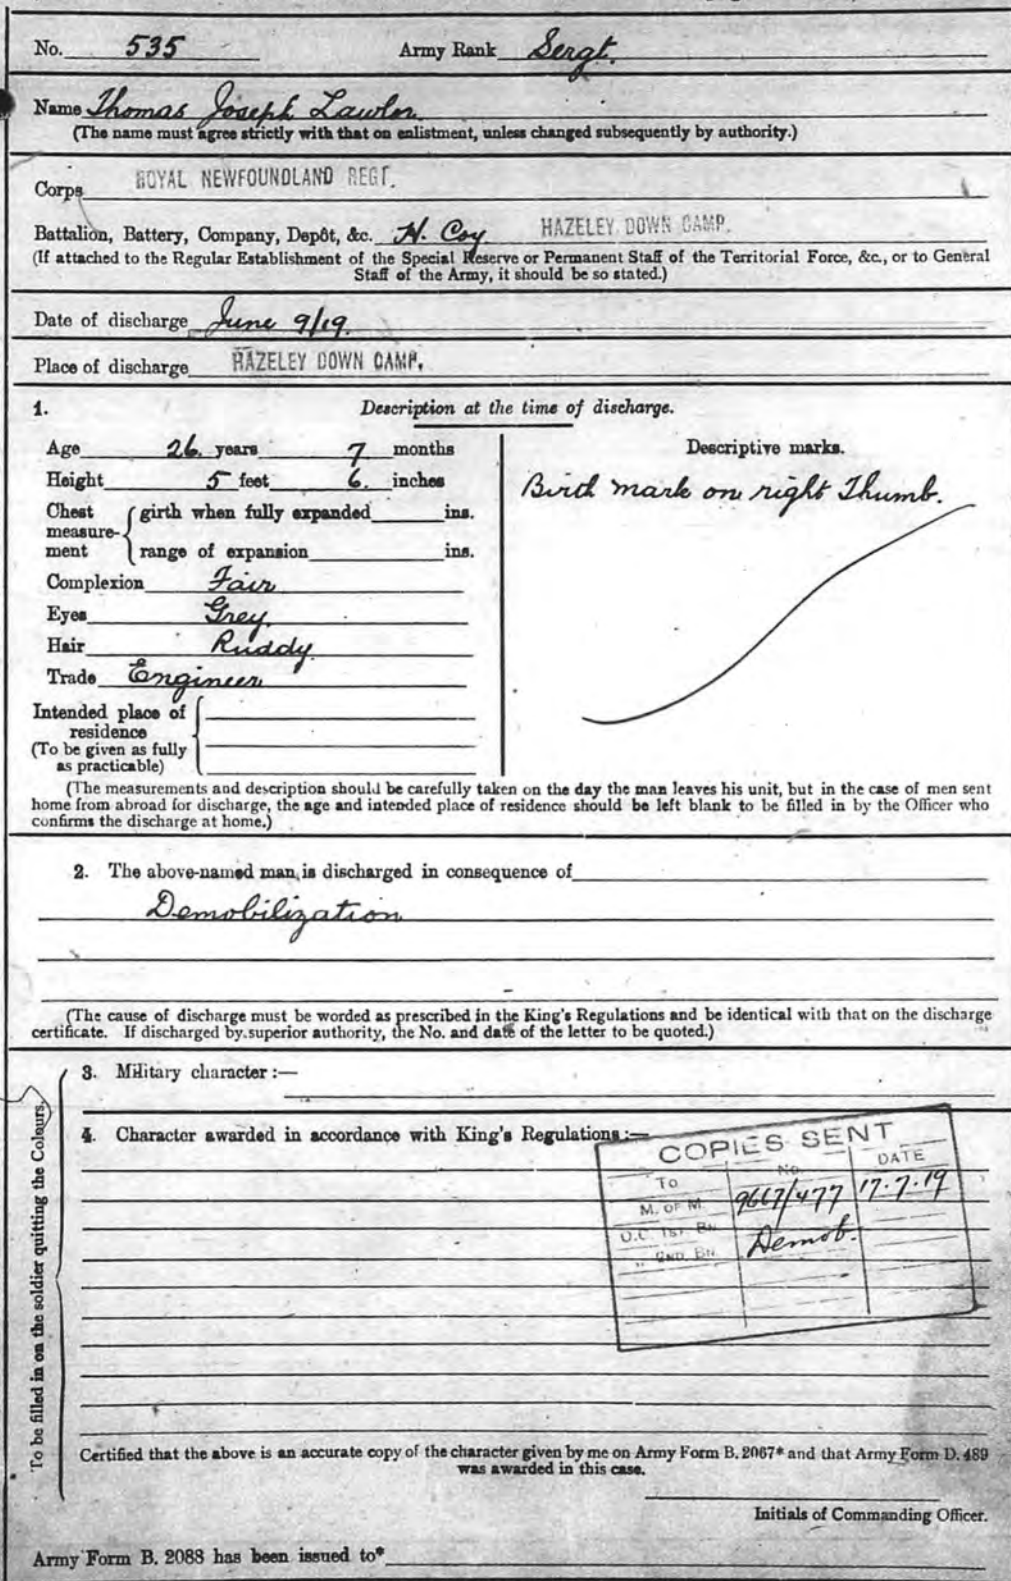 No. 535 Army Rank Sergt.
Name Thomas Joseph Lawlor
(The name must agree strictly with that on enlistment, unless changed subsequently by authority.)
Corps ROYAL NEWFOUNDLAND REGT.
Battalion, Battery, Company, Depôt, &c. H. Coy HAZELEY DOWN CAMP.
(If attached to the Regular Establishment of the Special Reserve or Permanent Staff of the Territorial Force, &c., or to General
Staff of the Army, it should be so stated.)
Date of discharge June 9/19.
Place of discharge HAZELEY DOWN CAMP.
1. Description at the time of discharge.
Age 26 years 7 months
Height 5 feet 6. inches
Chest measurement girth when fully expanded ins.
range of expansion ins.
Complexion Fair
Eyes Grey.
Hair Ruddy
Trade Engineer
Intended place of
residence
(To be given as fully
as practicable)
Descriptive marks.
Birth mark on right Thumb.
(The measurements and description should be carefully taken on the day the man leaves his unit, but in the case of men sent
home from abroad for discharge, the age and intended place of residence should be left blank to be filled in by the Officer who
confirms the discharge at home.)
2. The above-named man is discharged in consequence of
Demobilization
(The cause of discharge must be worded as prescribed in the King's Regulations and be identical with that on the discharge
certificate. If discharged by superior authority, the No. and date of the letter to be quoted.)
To be filled in on the soldier quitting the Colours.
3. Military character :—
4. Character awarded in accordance with King's Regulations :—
COPIES SENT
To No. DATE
M. OF M. 9667/477 17.7.19
O.C. 1ST. BN. Demob.
" 2ND. BN.
Certified that the above is an accurate copy of the character given by me on Army Form B. 2067* and that Army Form D. 489
was awarded in this case.
Initials of Commanding Officer.
Army Form B. 2088 has been issued to*